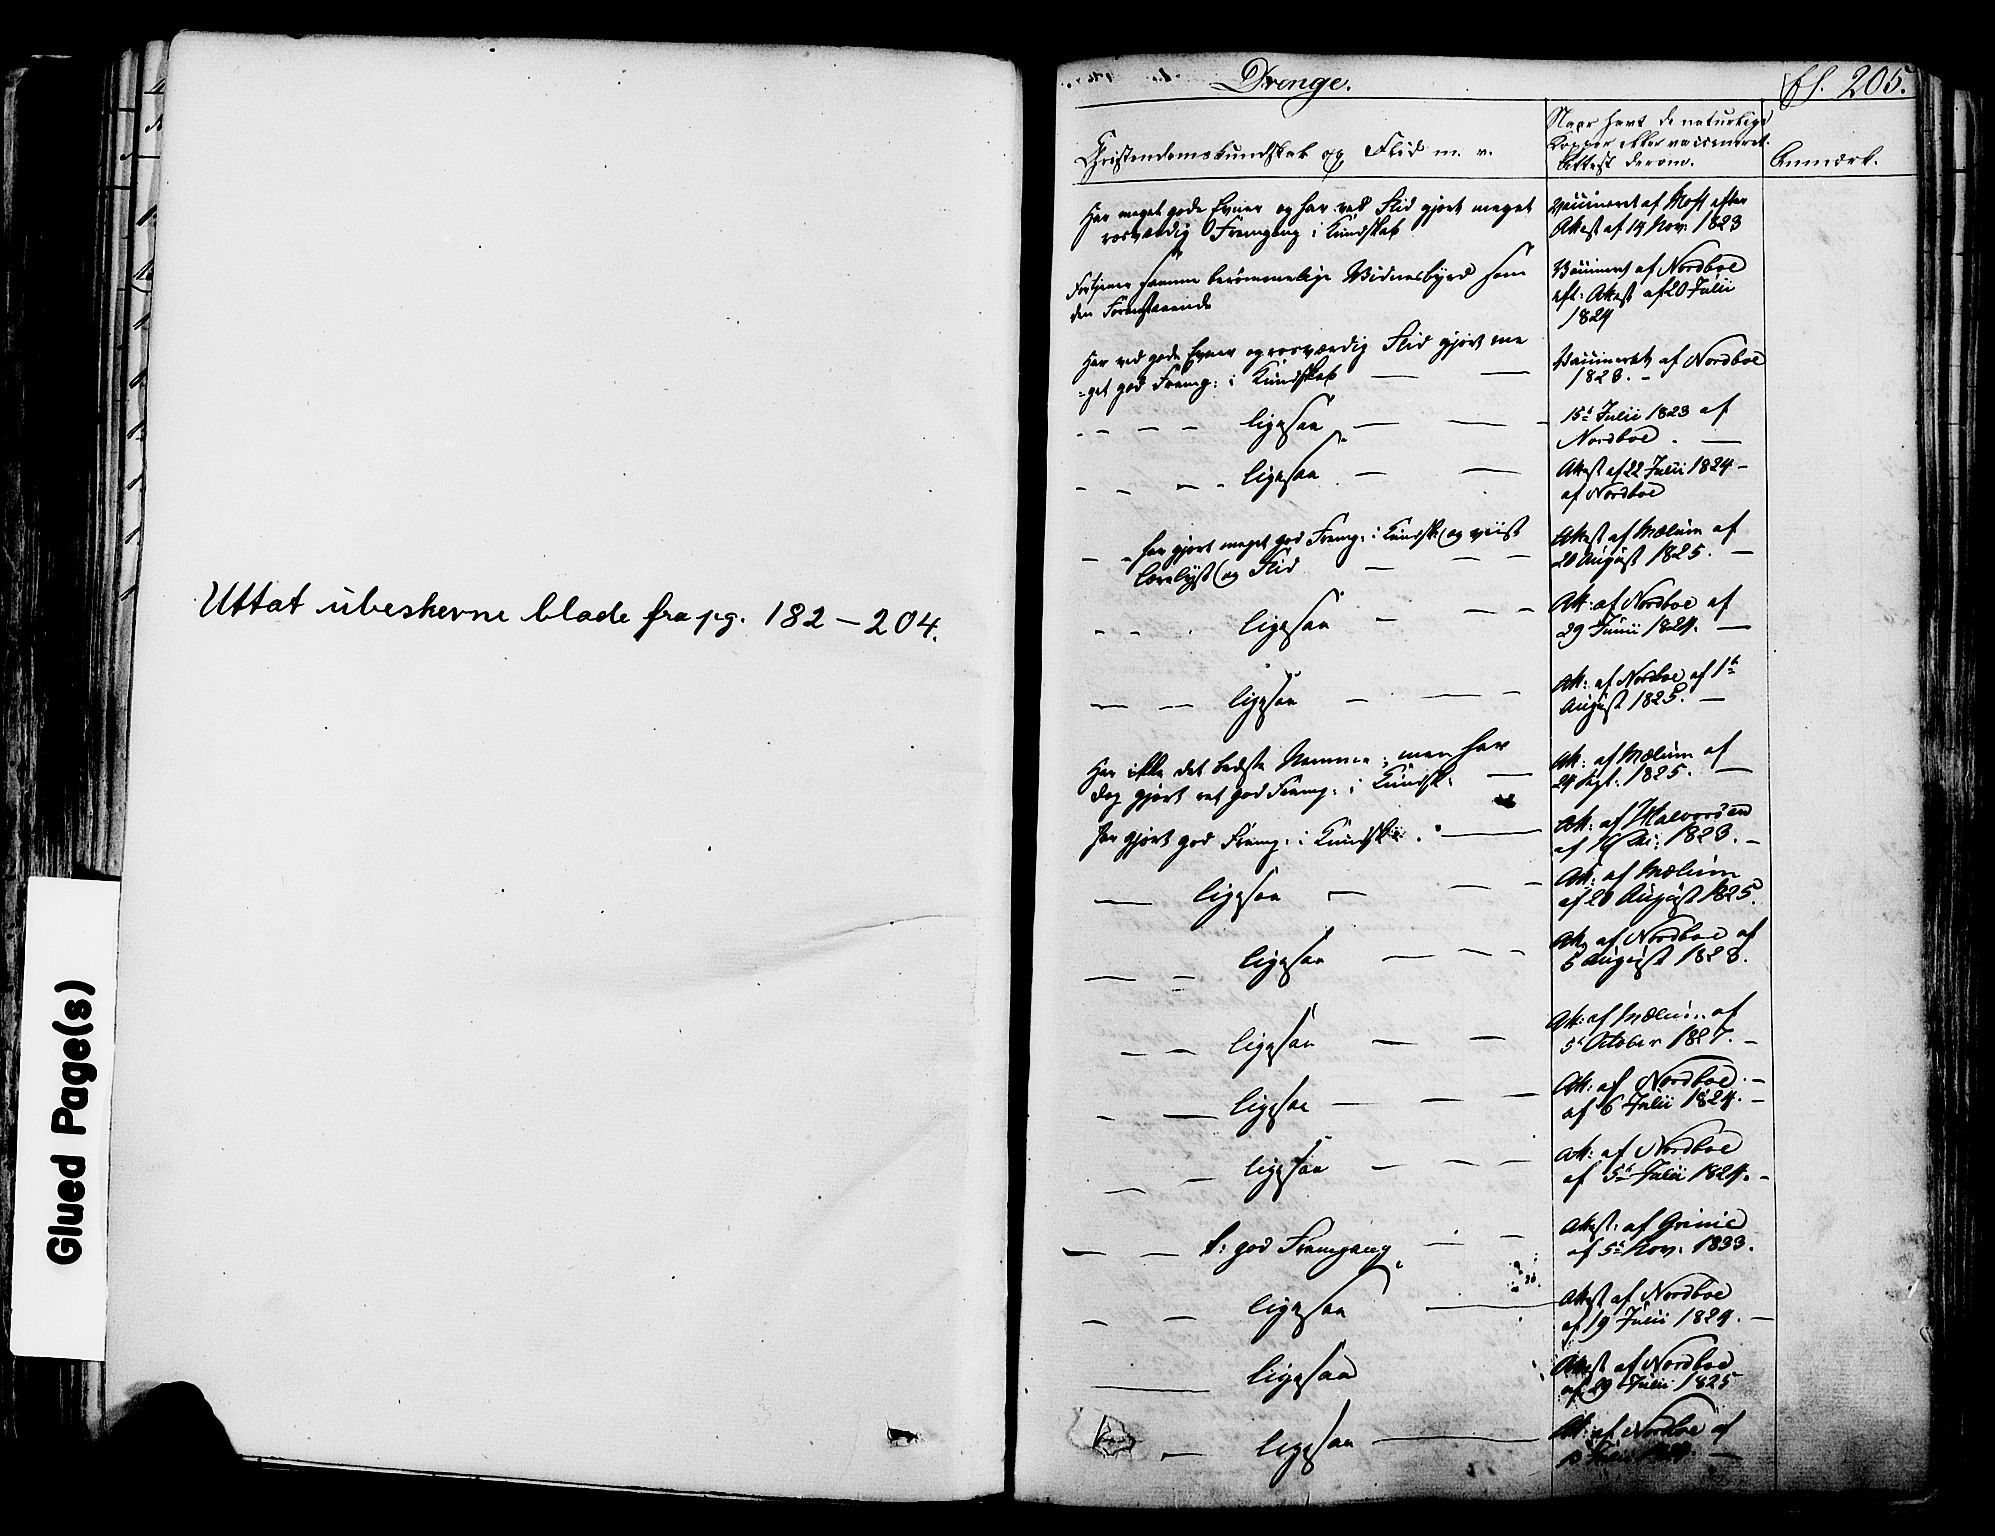 Uttat ubeskevne blade fra pg. 182 – 204.
Glued Page(s)
Drenge.
205.
Christendomskundskab og Flid m. v.
Naar havt de naturlige
Kopper eller vaccineret.
Attest derom.
Anmærk.
Har meget gode Evner og har ved Flid gjort meget
roesværdig Fremgang i Kundskab
Vaccineret af Moss efter
Attest af 14 Nov: 1823
Fortjener samme berømmelige Vidnesbyrd som
den Foranstaaende
Vaccineret af Nordboe
eft: Attest af 20 Julii
1824
Har ved gode Evner og rosværdig Flid gjort me
-get god Fremg: i Kundskab — —
Vaccineret af Nordboe
1823. -
ligesaa — — —
15de Julii 1823 af
Nordboe. —
ligesaa — —
Attest af 22 Julii 1824 –
af Nordboe
har gjort meget god Fremg: i Kundsk: og viist
Lærelyst og Flid — — —
Attest af Mælum af
20 August 1825. —
ligesaa — — —
Att: af Nordboe af
29 Junii 1824. —
ligesaa — — —
Att: af Nordboe af 1ste
August 1825. —
Har ikke det bedste Nemme; men har
dog gjort ret god Fremg: i Kundsk: —
Att: af Mælum af
24 Sept. 1825. —
har gjort god Fremg: i Kundsk: —
Att: af Halvorsen
af 1823. –
— ligesaa — — —
Att: af Mælum
af 20 August 1825.
— — ligesaa — — —
Att: af Nordboe af
5 August 1823.
— — ligesaa — —
Att: af Mælum af
5te October 1827. –
— — ligesaa — — —
Att: af Nordboe. –
af 6 Julii 1824. –
— — ligesaa — — —
Att: af Nordboe
af 5te Julii 1824. –
— — t: god Fremgang — —
Attest: af Grinie
af 5te Nov: 1833.
— — ligesaa —
Attest af Nordboe
af 19 Julii 1824. —
— ligesaa
Attest af Nordboe
af 29 Julii 1825
— ligesaa —
Att: af Nordboe af
Julii —